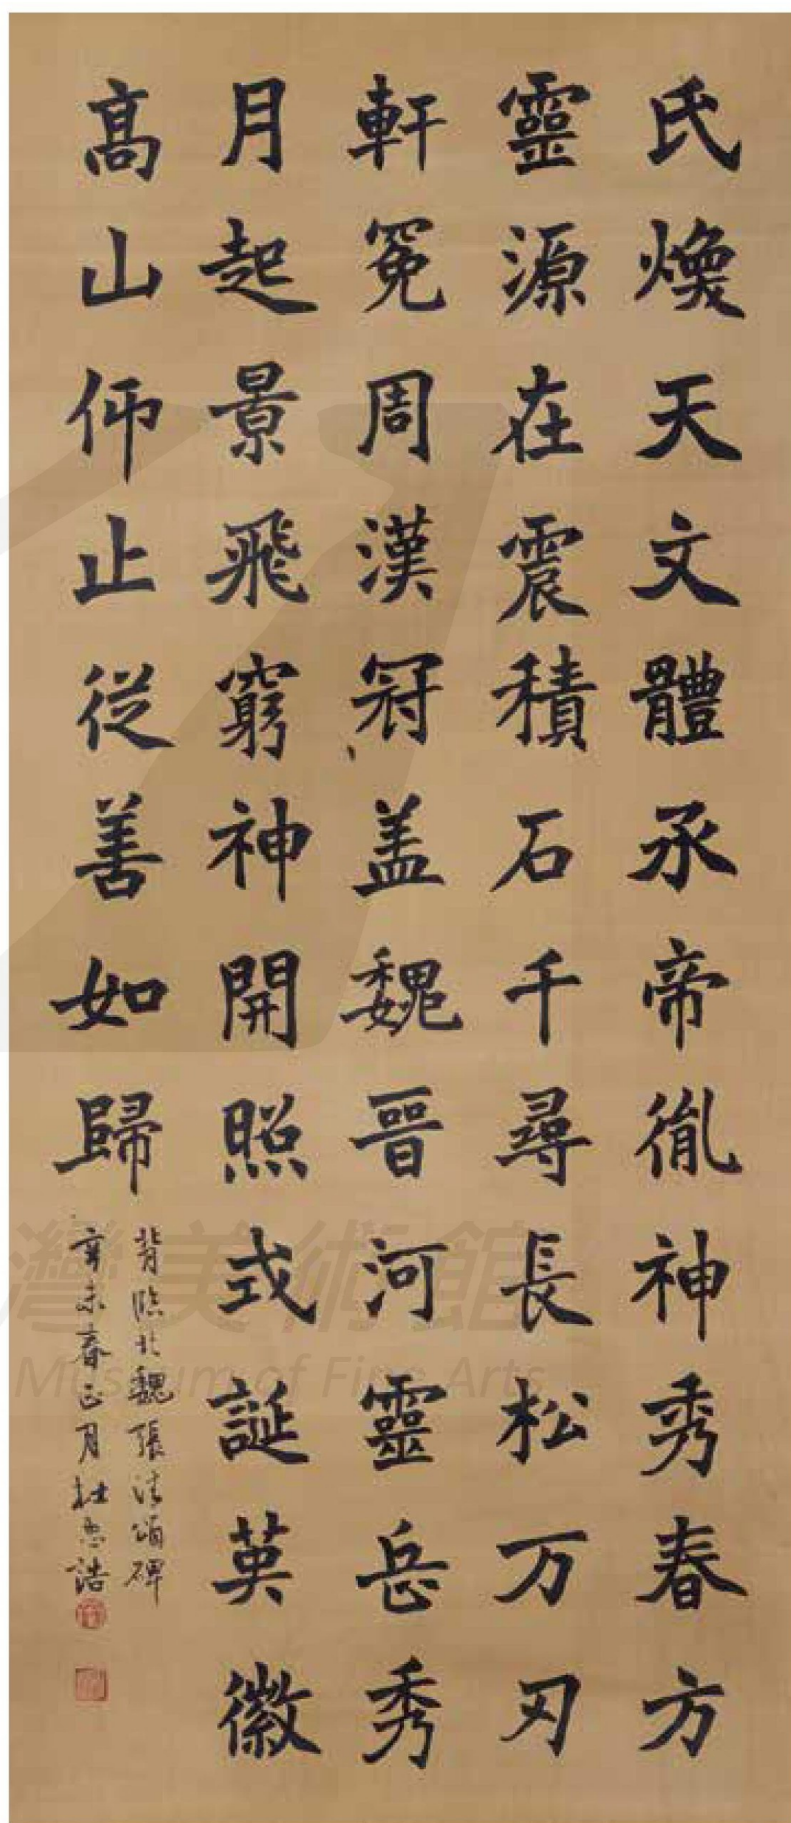 氏煥天文體承帝胤神秀春方
靈源在震積石千尋長松万刃
軒冕周漢冠盖魏晉河靈岳秀
月起景飛窮神開照式誕英徽
高山仰止從善如歸
背臨北魏張清頌碑
辛未春正月杜忠誥
灣美術館
Museum of Fine Arts